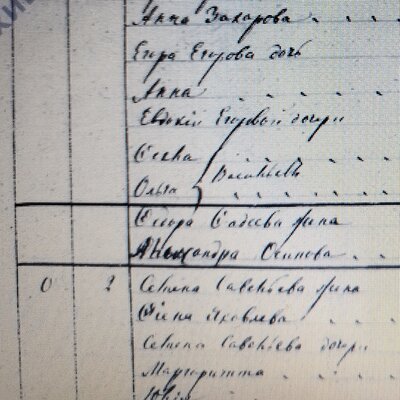 Анна Захарова
Егора Егорова дочь
Анна
Евдокiи Егоровой дочери
Елена
Ольга
Васильевы
Сидора Савеева жена
Александра Осипова
0 2 Семена Савельева жена
Яковлева
Семена Савельева дочери
Маргаритта